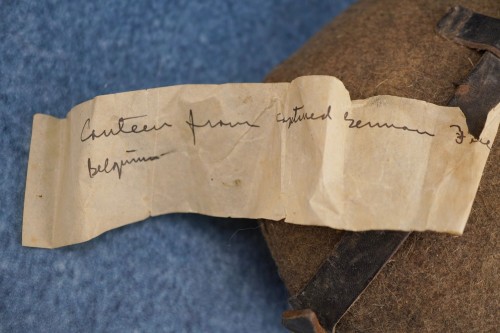 Canteen from captured German
Belgium